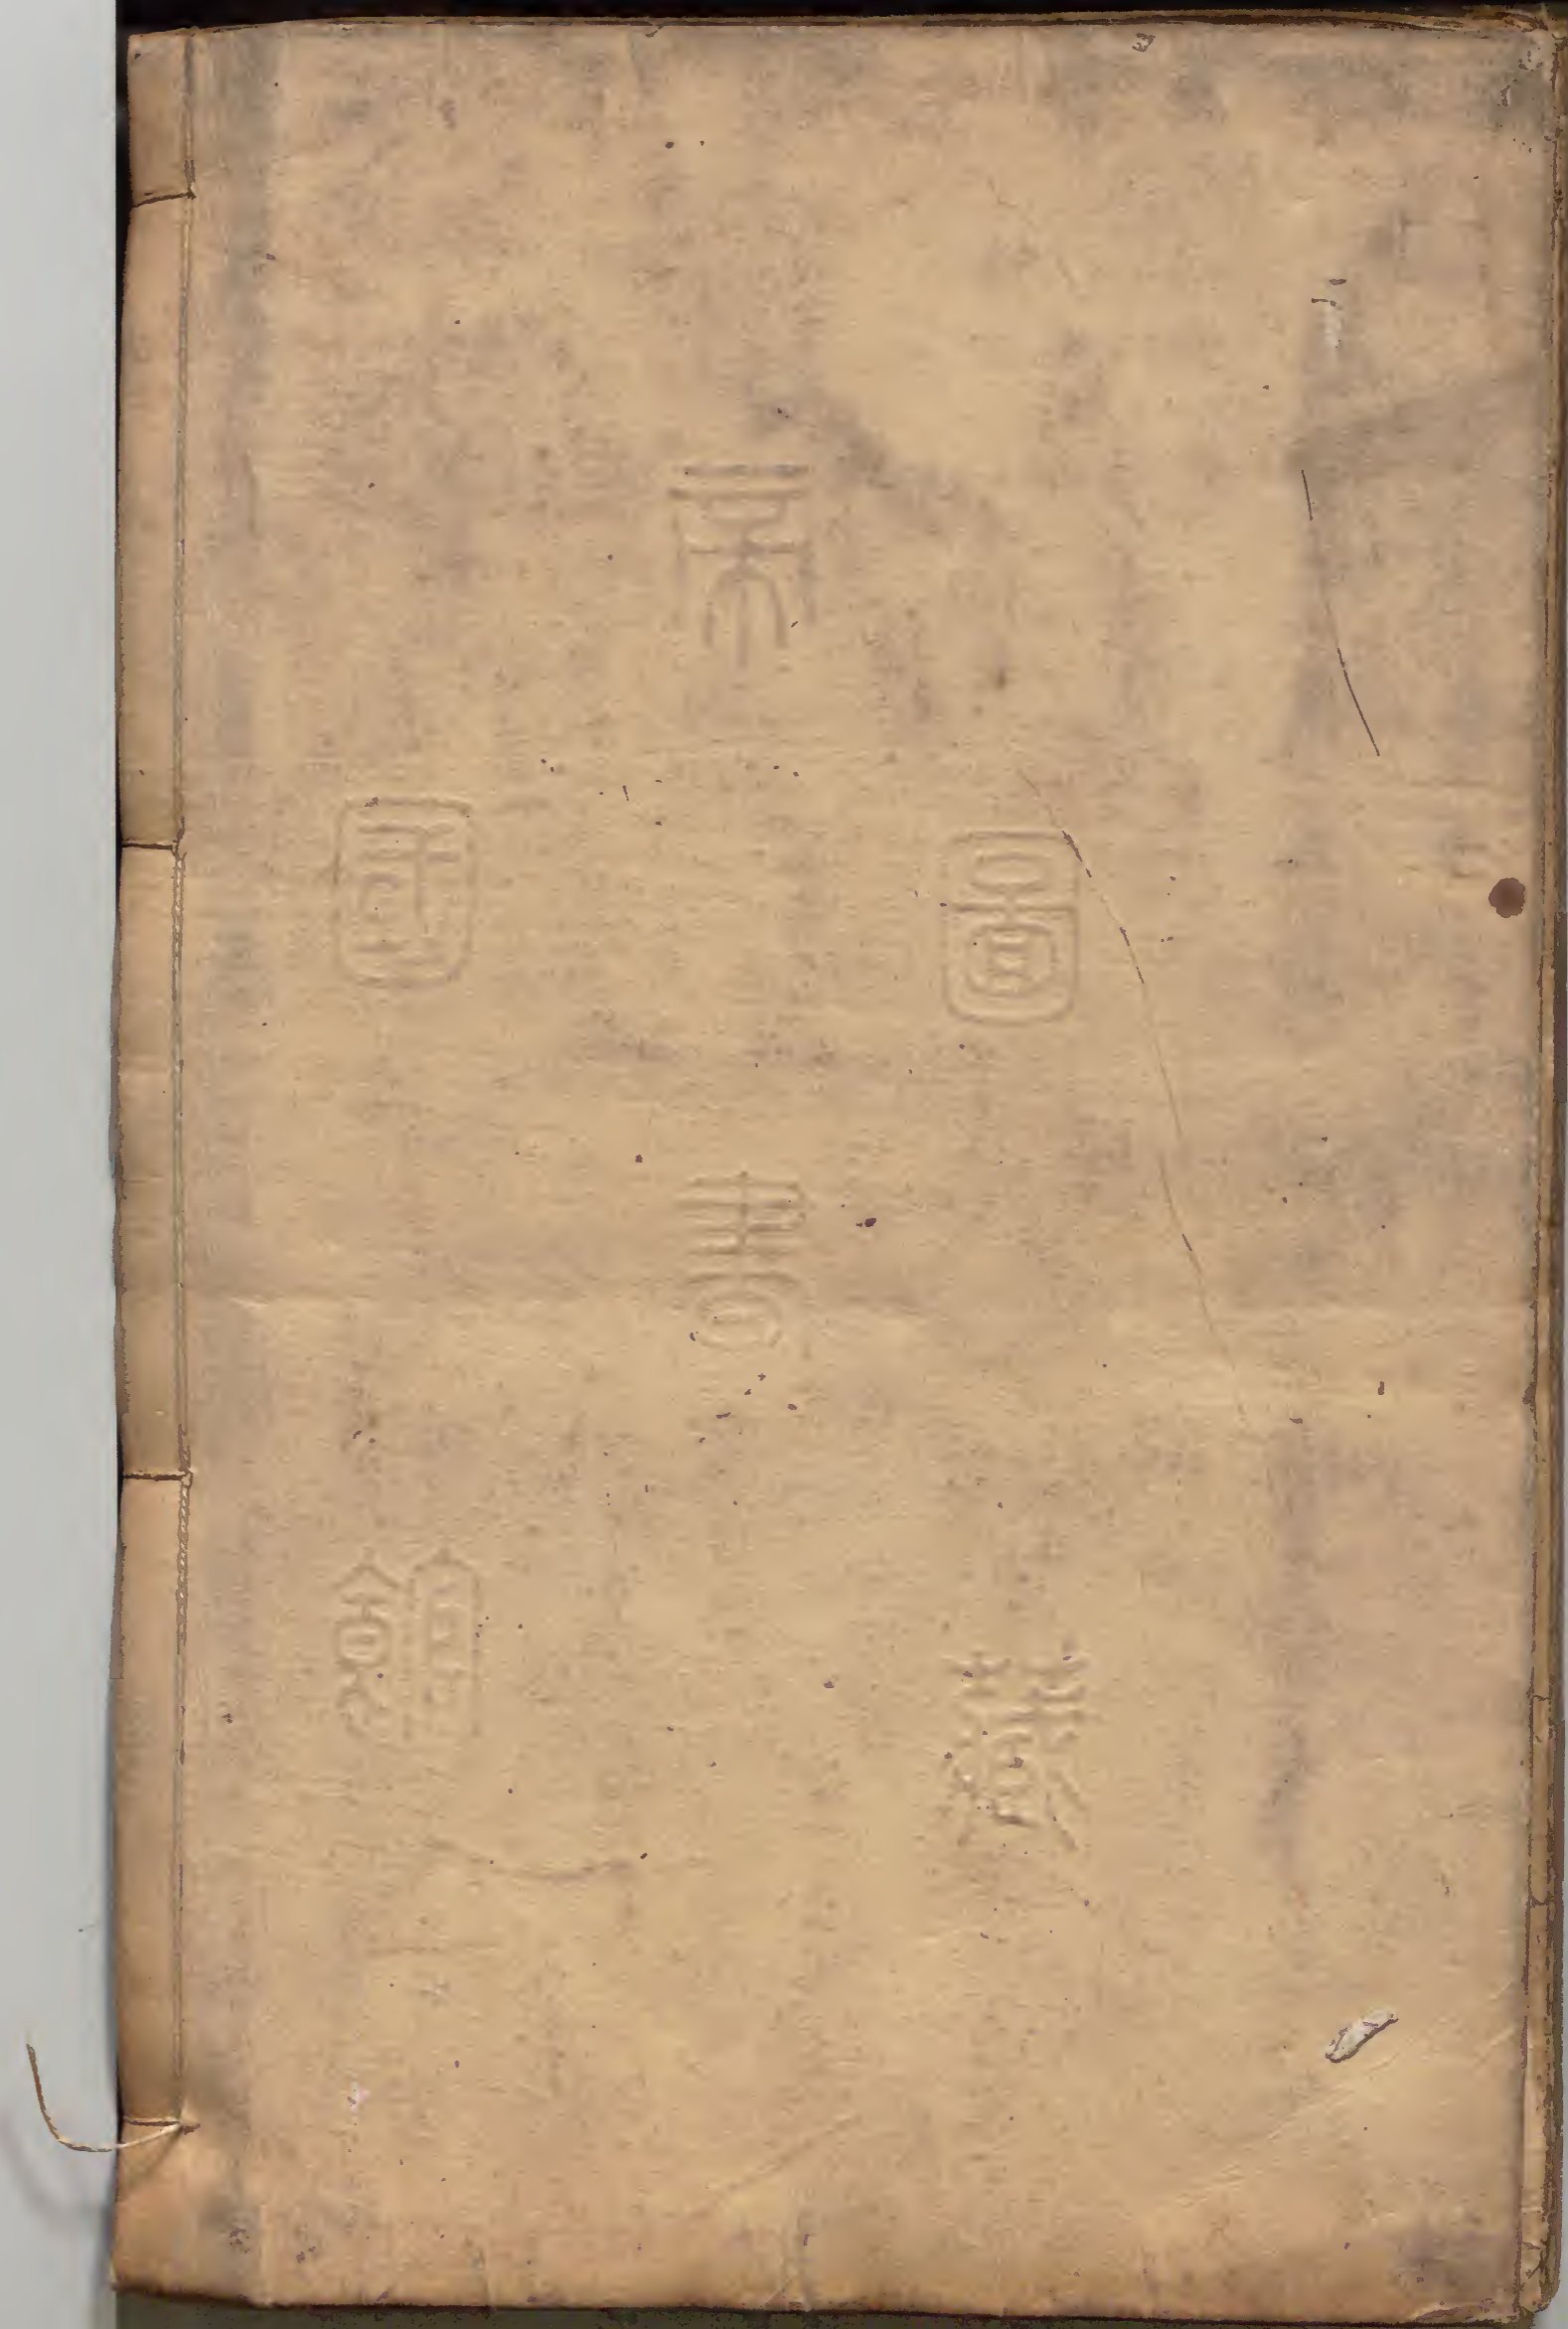 帝
國
圖
書
館
藏